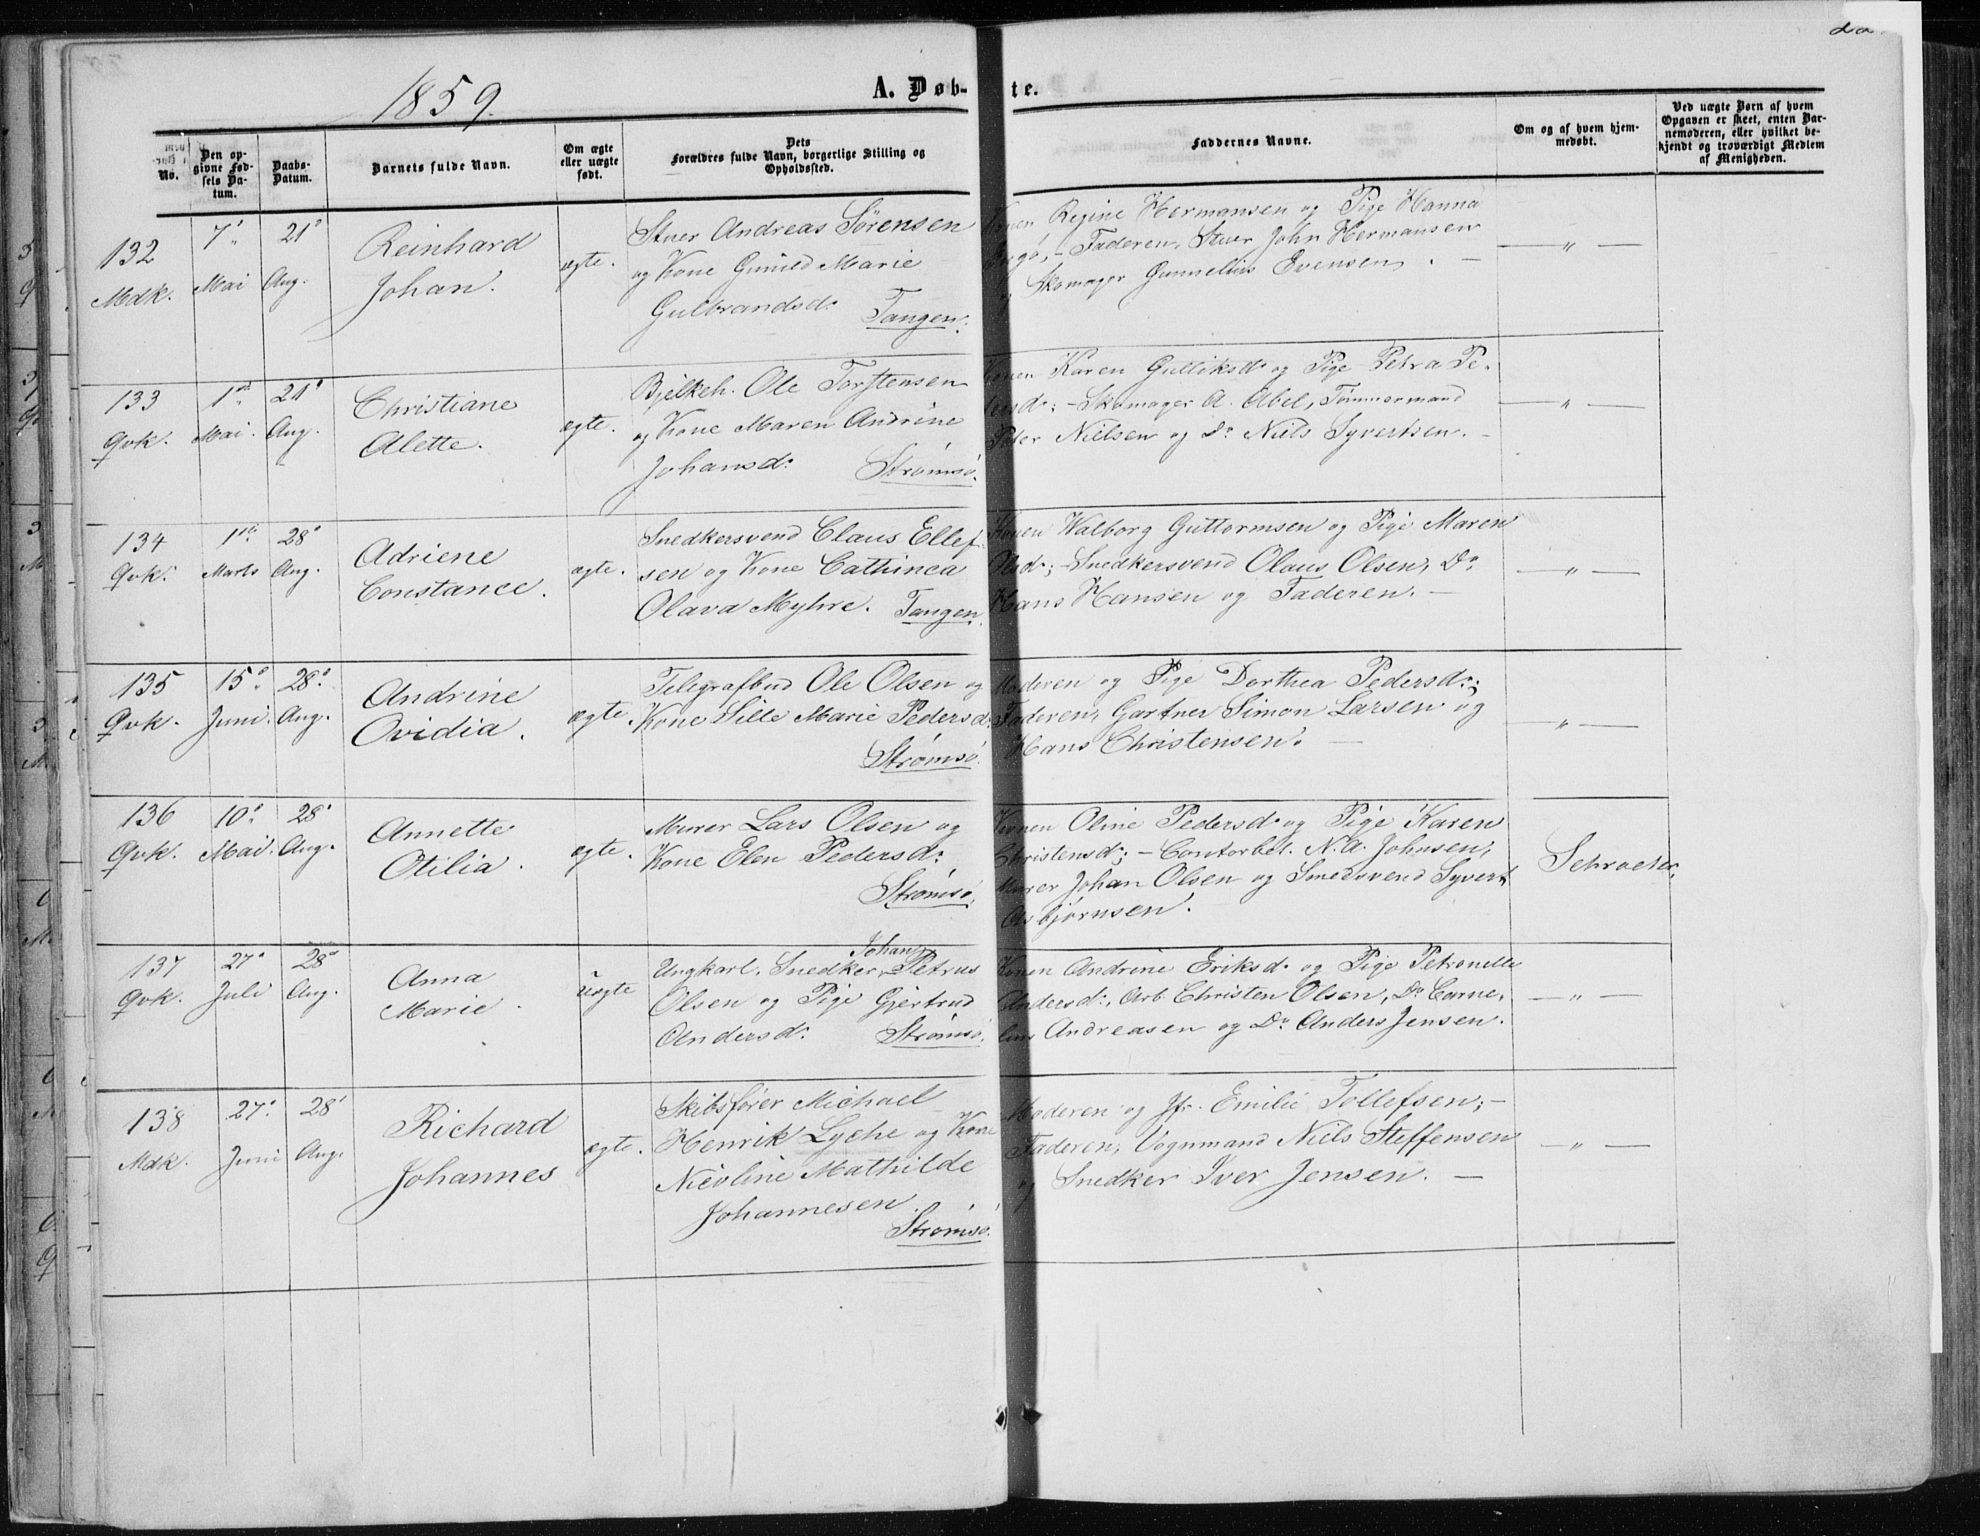 1859.
A. Døbte.
No.
Den opgivne Fødsels Datum.
Daabs-Datum.
Barnets fulde Navn.
Om ægte eller uægte født.
Dets Forældres fulde Navn, borgerlige Stilling og Opholdssted.
Faddernes Navne.
Om og af hvem hjemmedøbt.
Ved uægte Børn af hvem Opgaven er skeet, enten Barnemoderen, eller hvilket bekjendt og troværdigt Medlem af Menigheden.
132 Mdk.
7de Mai
21de Aug.
Reinhard
Johan.
ægte.
Stuer Andreas Sørensen
og Kone Gunild Marie
Gulbrandsd: Tangen.
Konen Regine Hermansen og Pige Hanna
Faderen, Stuer John Hermansen
og Skomager Gunnelius Evensen. —
— " —
133 Qvk.
1ste Mai.
21de Aug.
Christiane
Alette.
ægte.
Bjelkeh. Ole Torstensen
og Kone Maren Andrine
Johansd: Strømsø.
Konen Karen Gulliksd: og Pige Petra Pe-
tersd: - Skomager A. Abel, Tømmermand
Peder Nielsen og Do Niels Syvertsen. —
— " —
134 Qvk.
1ste Marts
28de Aug.
Adriene
Constance.
ægte.
Snedkersvend Claus Ellef-
sen og Kone Cathinca
Olava Myhre. Tangen.
Konen Walborg Guttormsen og Pige Maren
Olsd:; - Snedkersvend Olaus Olsen, Do
Hans Hansen og Faderen. —
— " —
135 Qvk.
15de Juni.
28de Aug.
Andrine
Ovidia.
ægte.
Telegrafbud Ole Olsen og
Kone Sille Marie Pedersd:
Strømsø.
Moderen og Pige Dorthea Pedersd:;
Faderen, Gartner Simon Larsen og
Hans Christensen. —
— " —
136 Qvk.
10de Mai.
28de Aug.
Annette
Otilia.
ægte.
Murer Lars Olsen og
Kone Elen Pedersd:
Strømsø.
Konen Oline Pedersd: og Pige Karen
Christensd:; - Contorbet. N. A. Johnsen,
Murer Johan Olsen og Smedsvend Syvert
Asbjørnsen.
Schroeter.
137 Qvk.
27de Juli
28de Aug.
Anna
Marie.
uægte
Ungkarl, Snedker Johan Petrus
Olsen og Pige Gjertrud
Andersd: Strømsø.
Konen Andrine Eriksd: og Pige Petronelle
Andersd:, Arb. Christen Olsen, Do Corne-
lius Andreasen og Do Anders Jensen.
— " —
138 Mdk.
27de Juni
28de Aug.
Richard
Johannes
ægte.
Skibsfører Michael
Henrik Lyche og Kone
Nicoline Mathilde
Johannesen.
Strømsø.
Moderen og Jfr. Emilie Tollefsen; —
Faderen, Vognmand Niels Steffensen
og Snedker Iver Jensen. —
— " —